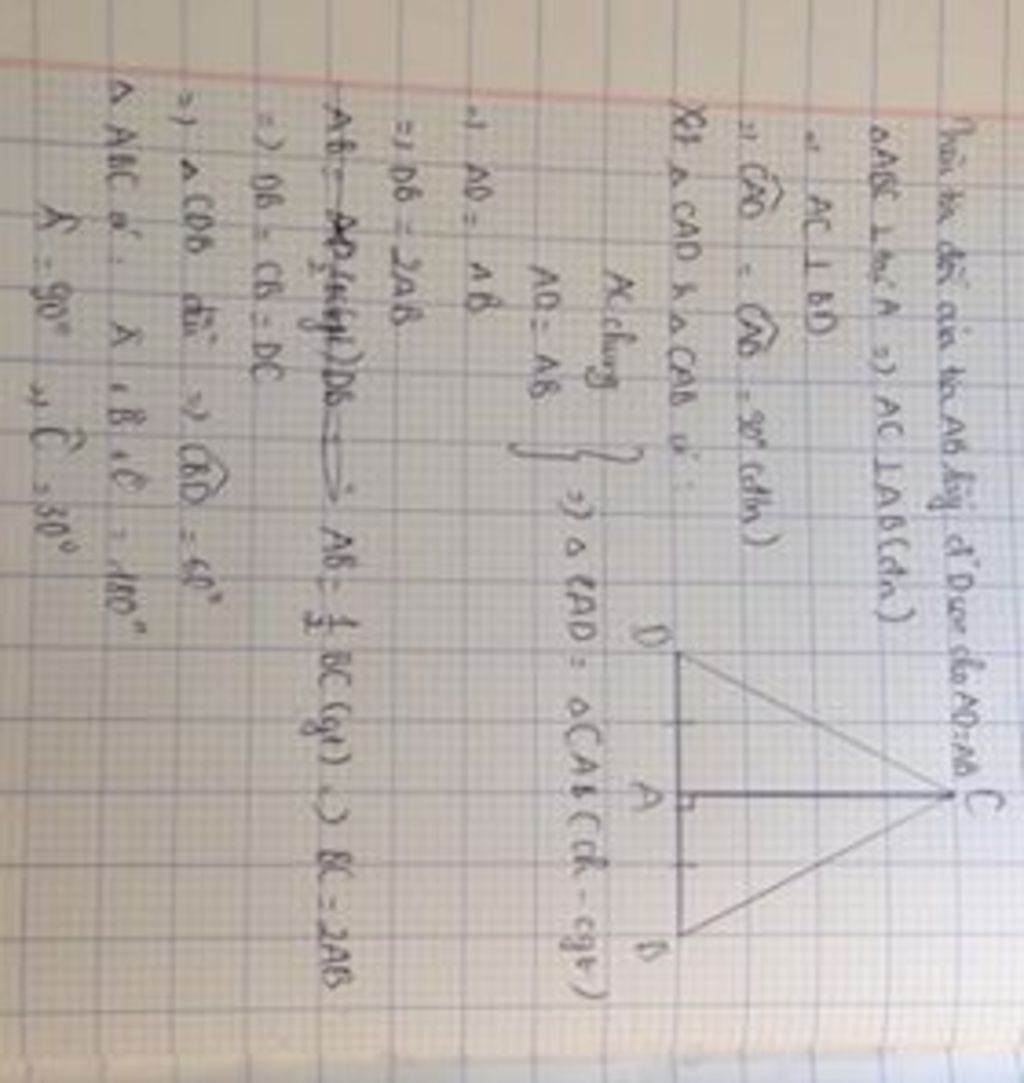 Trên tia đối của tia AB lấy đ' D sao cho AD = AB
∆ABC ⊥ tại A => AC ⊥ AB (đ/n)
=> AC ⊥ BD
=> CAD = CAB = 90° (đ/n)
Xét ∆ CAD & ∆ CAB có:
AC chung
AD = AB } => ∆ CAD = ∆ CAB (ch - cgv)
=> AD = AB
=> DB = 2AB
AB = DB => AB = 1/2 BC (gt) => BC = 2AB
=> DB = CB = DC
=> ∆ CDB đều => CBD = 60°
∆ ABC có: A + B + C = 180°
Â = 90° => Ĉ = 30°
C
D
A
B